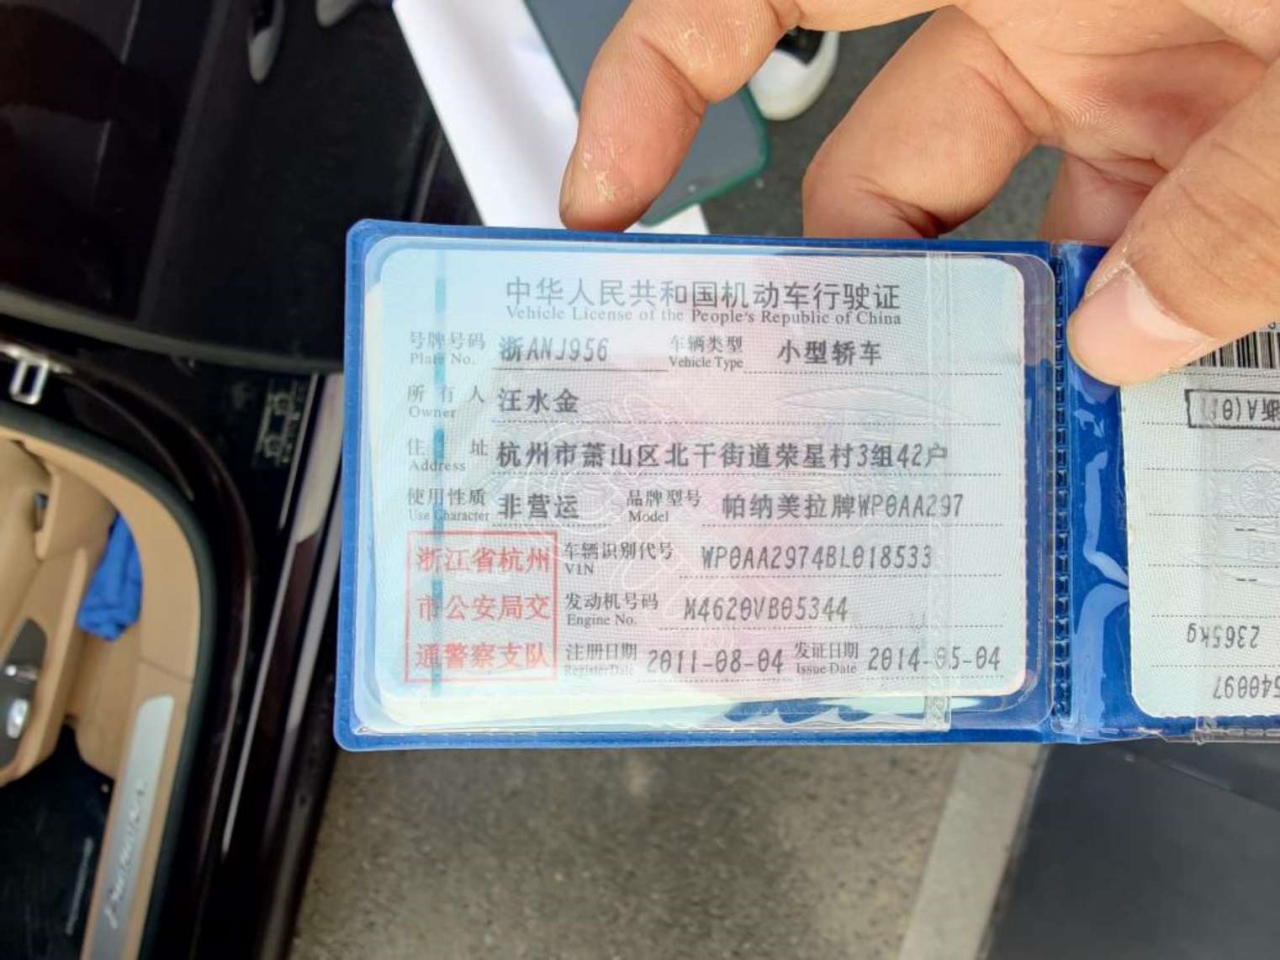 中华人民共和国机动车行驶证
Vehicle License of the People's Republic of China
号牌号码 浙ANJ956 车辆类型 小型轿车
Plate No. Vehicle Type
所有人 汪水金
Owner
住址 杭州市萧山区北干街道荣星村3组42户
Address
使用性质 非营运 品牌型号 帕纳美拉牌WP0AA297
Use Character Model
浙江省杭州
市公安局交
通警察支队
车辆识别代号 WP0AA2974BL018533
VIN
发动机号码 M4620VB05344
Engine No.
注册日期 2011-08-04 发证日期 2014-05-04
Register Date Issue Date
浙A(0
2365kg
540097
Panamera